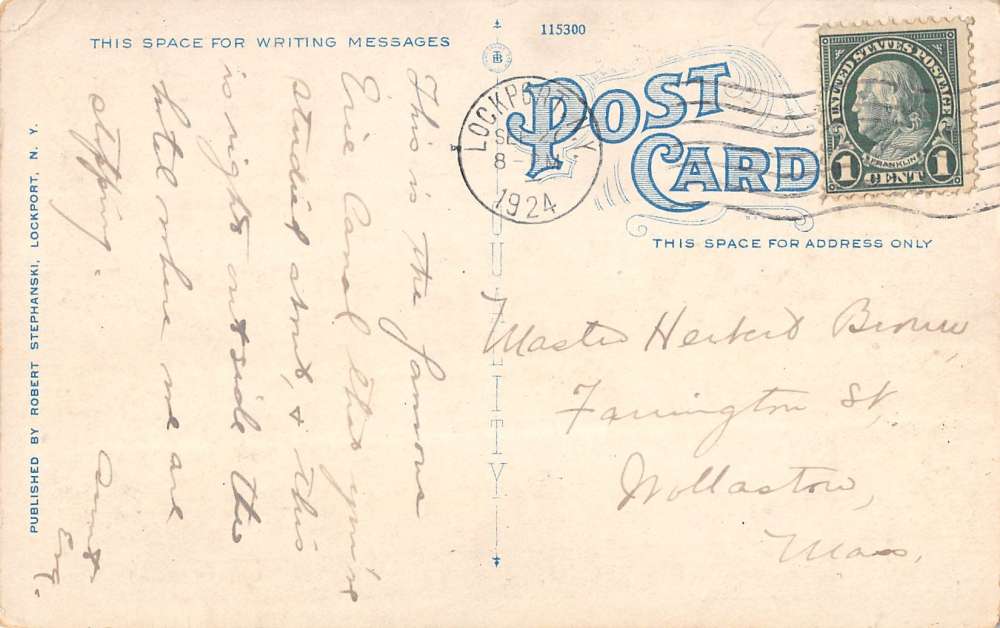 THIS SPACE FOR WRITING MESSAGES
115300
POST
CARD
LOCKPORT N.Y.
SEP
8 -
1924
UNITED STATES POSTAGE
FRANKLIN
1 CENT 1
THIS SPACE FOR ADDRESS ONLY
This is the famous
Erie Canal that you've
studied about, & this
is right outside the
hotel where we are
stopping.
Aunt
Master Herbert Brown,
Farrington St.
Wollaston,
Mass.
QUALITY
PUBLISHED BY ROBERT STEPHANSKI, LOCKPORT, N. Y.